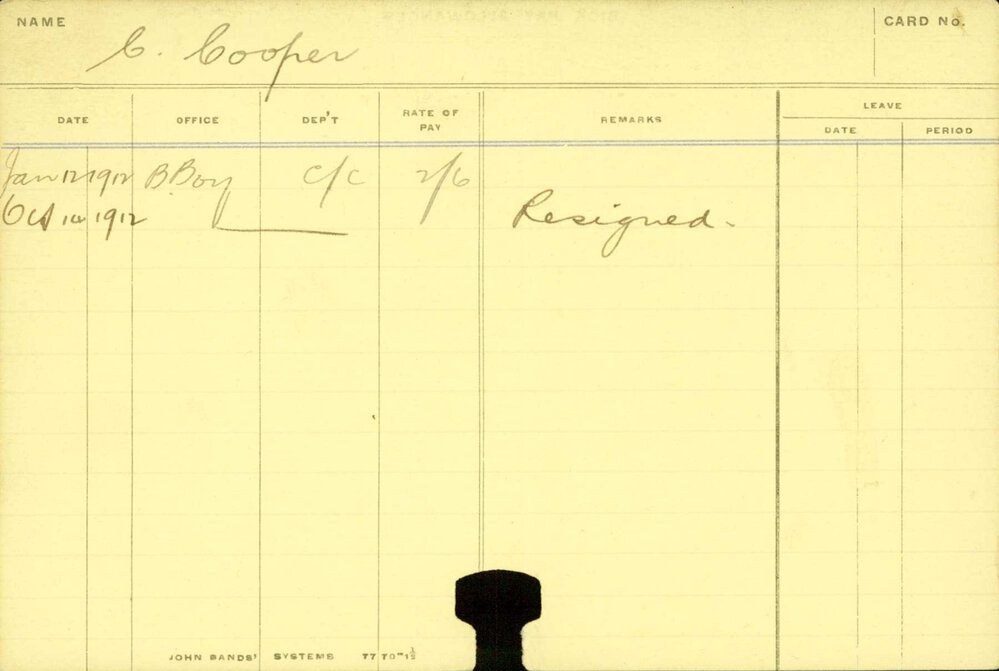 NAME C. Cooper CARD No.
DATE OFFICE DEP'T RATE OF PAY REMARKS LEAVE
DATE PERIOD
Jan 12 1912 B.Boy C/C 2/6
Oct 1912 Resigned.
JOHN SANDS' SYSTEMS